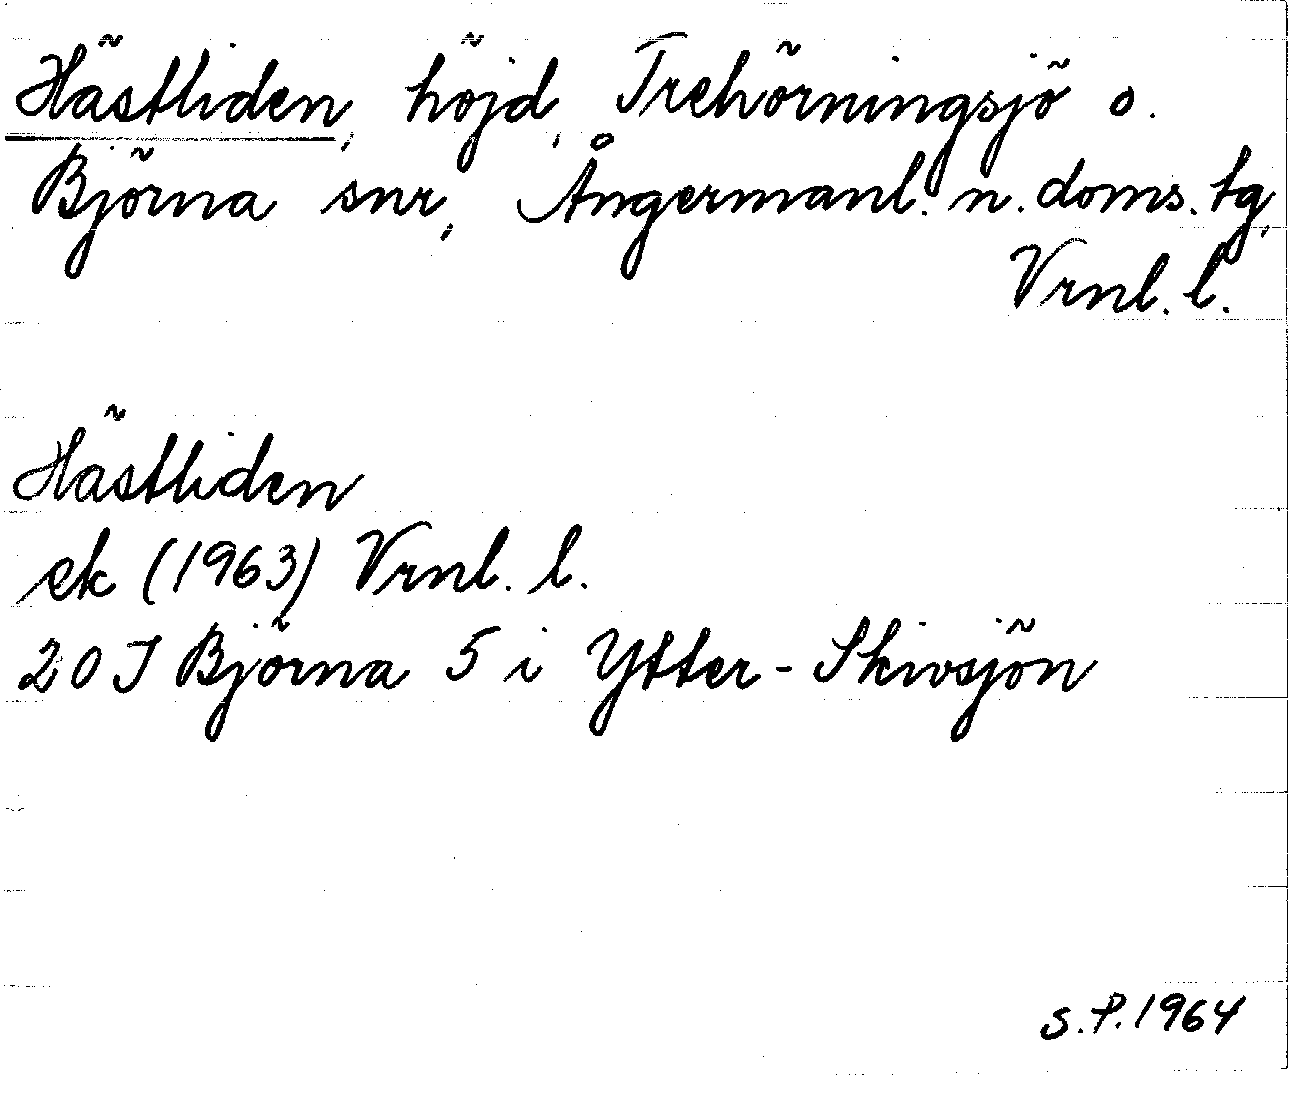 Hästliden, höjd, Trehörningsjö o.
Björna snr, Ångermanl. n. doms. tg,
Vrnl. l.
Hästliden
ek (1963) Vrnl. l.
20 J Björna 5 i Ytter-Skivsjön
S.P. 1964